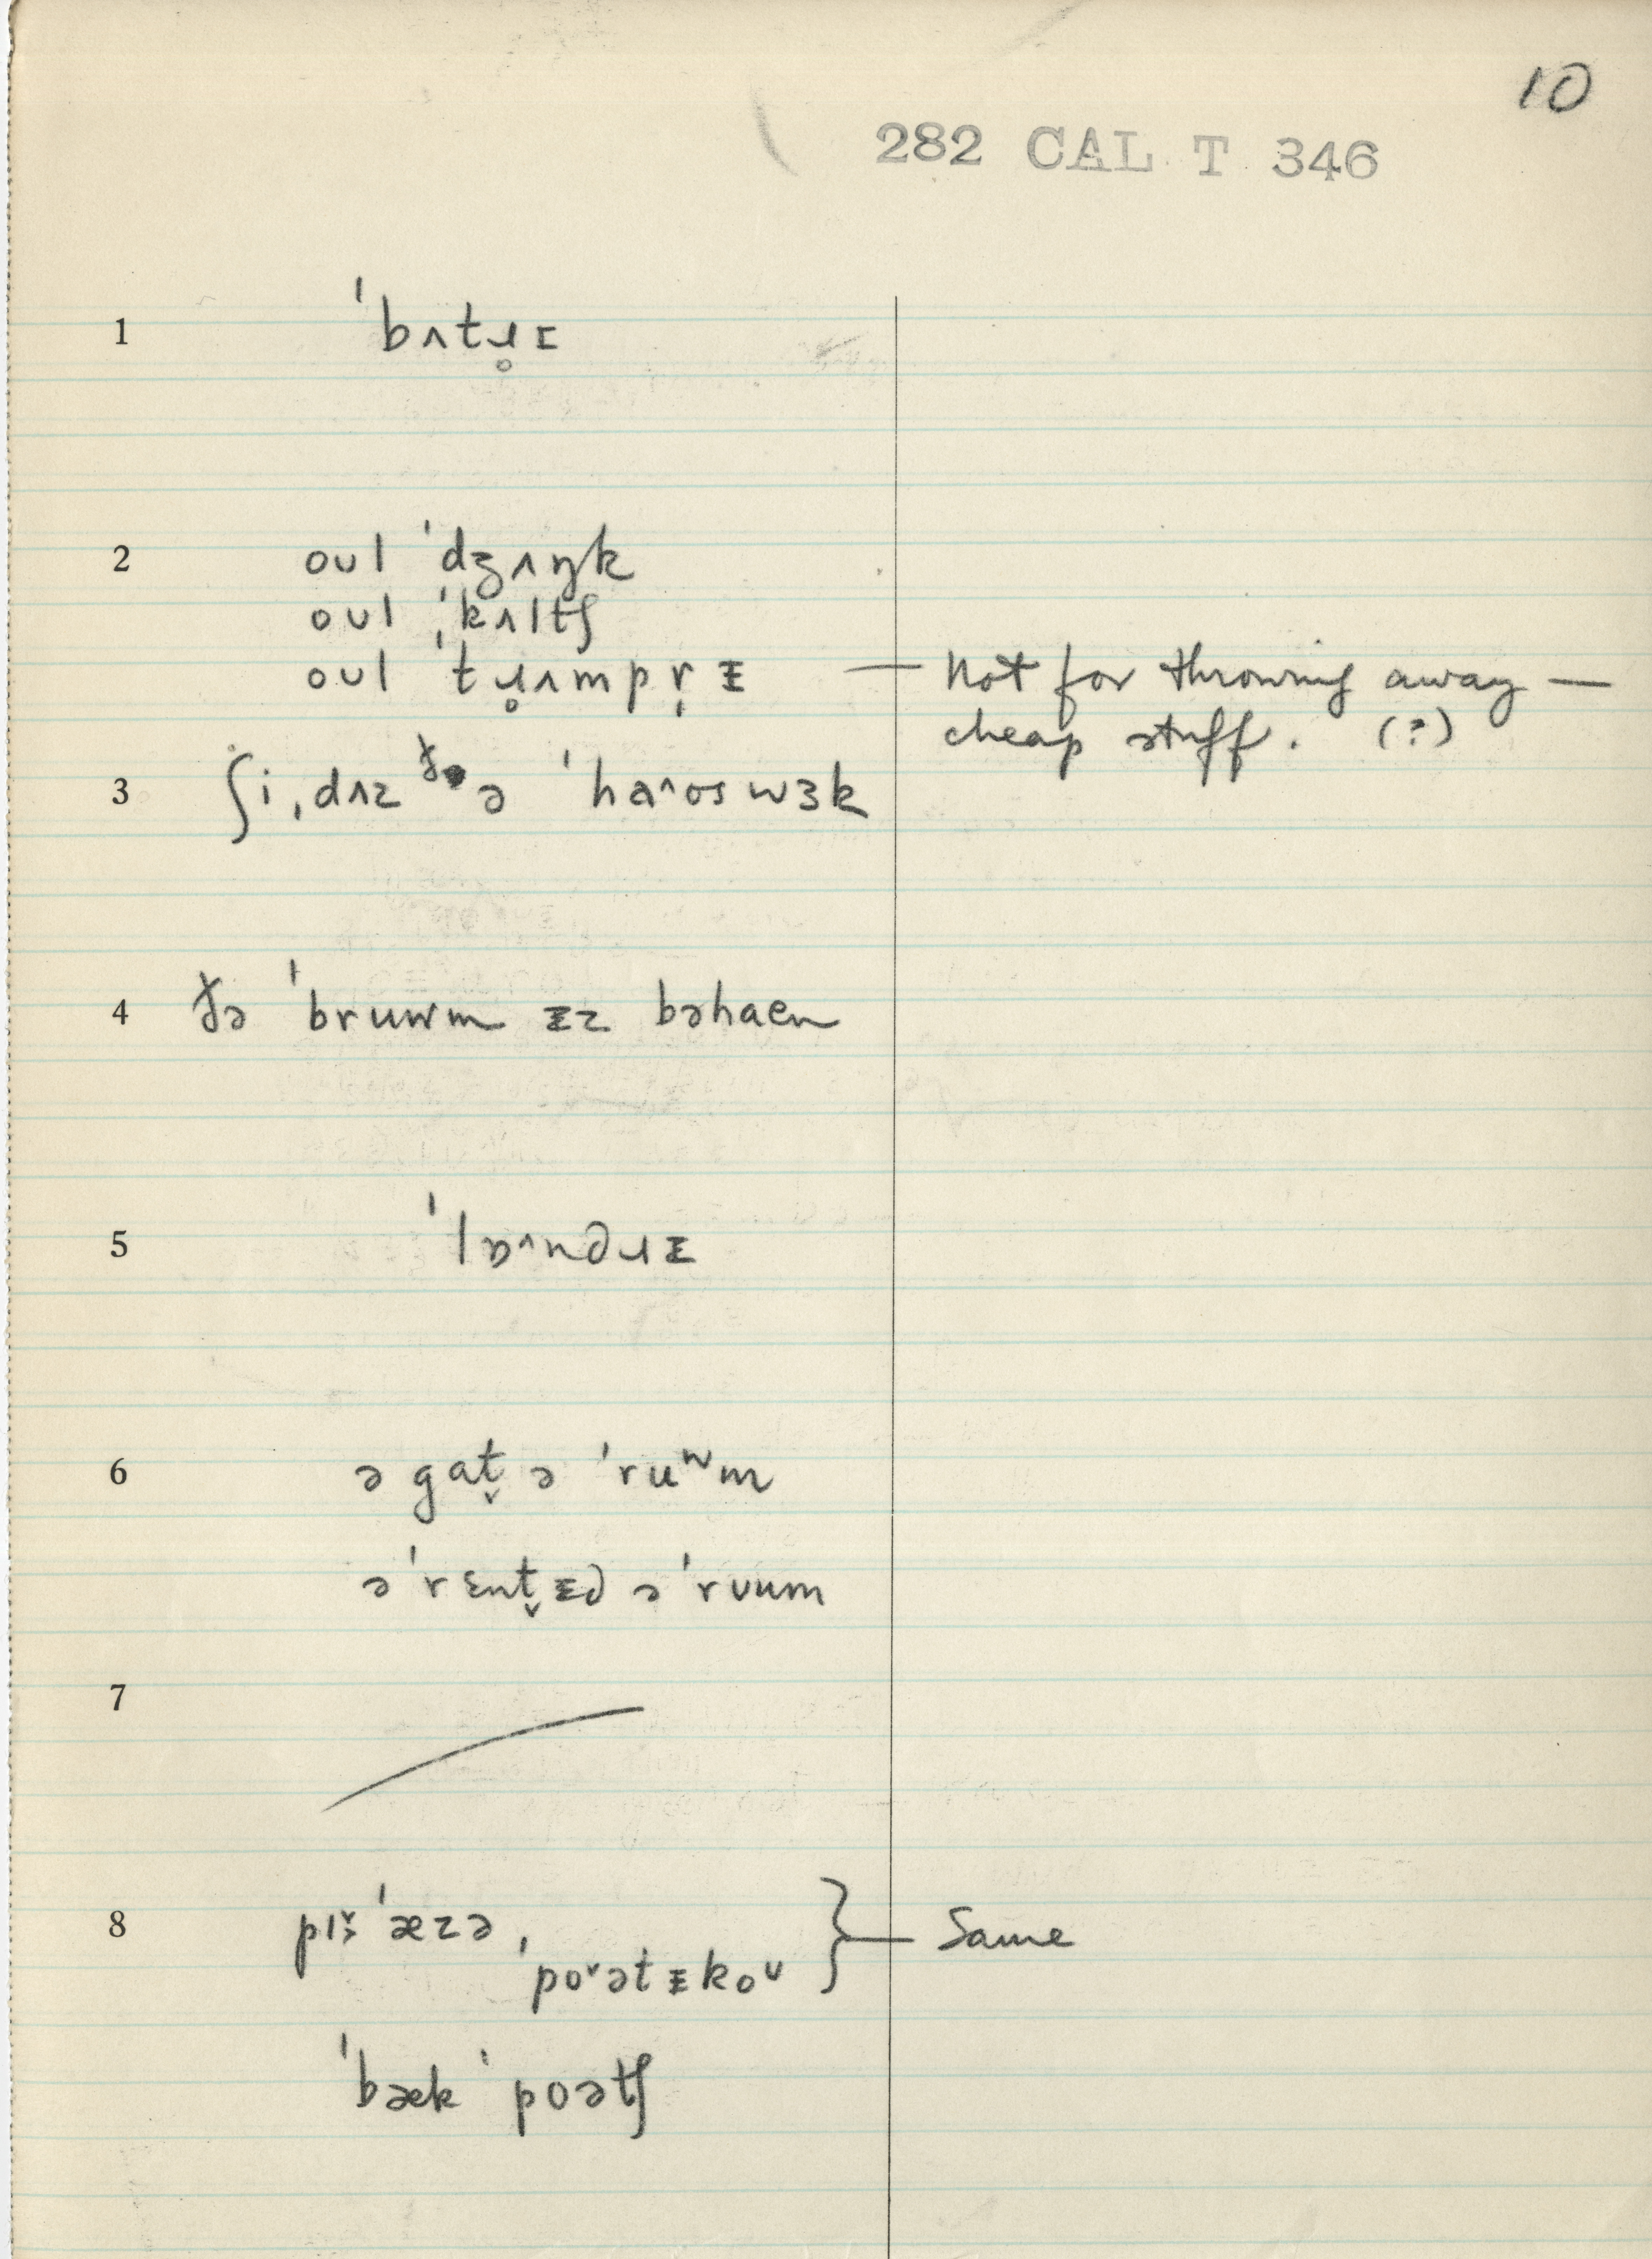 10
282 CAL T 346
1 ˈbʌtɹ̥ɪ
2 oʊl ˈdʒʌŋk
oʊl ˌˈkʌltʃ
oʊl ˈtɹ̥ʌmpr̩ᵻ — Not for throwing away —
cheap stuff. (?)
3 ʃi ˌdʌz ðə ˈhaˆʊswɜk
4 ðə ˈbruwm ᵻz bəhaen
5 ˈlɒˆndɹᵻ
6 ə gat̬ ə ˈruʷm
ə ˈrɛnt̬ᵻd ə ˈrʊum
7
8 ˈæzə, } — Same
ˈpoˇətᵻkoʊ
ˈbæk ˈpoətʃ